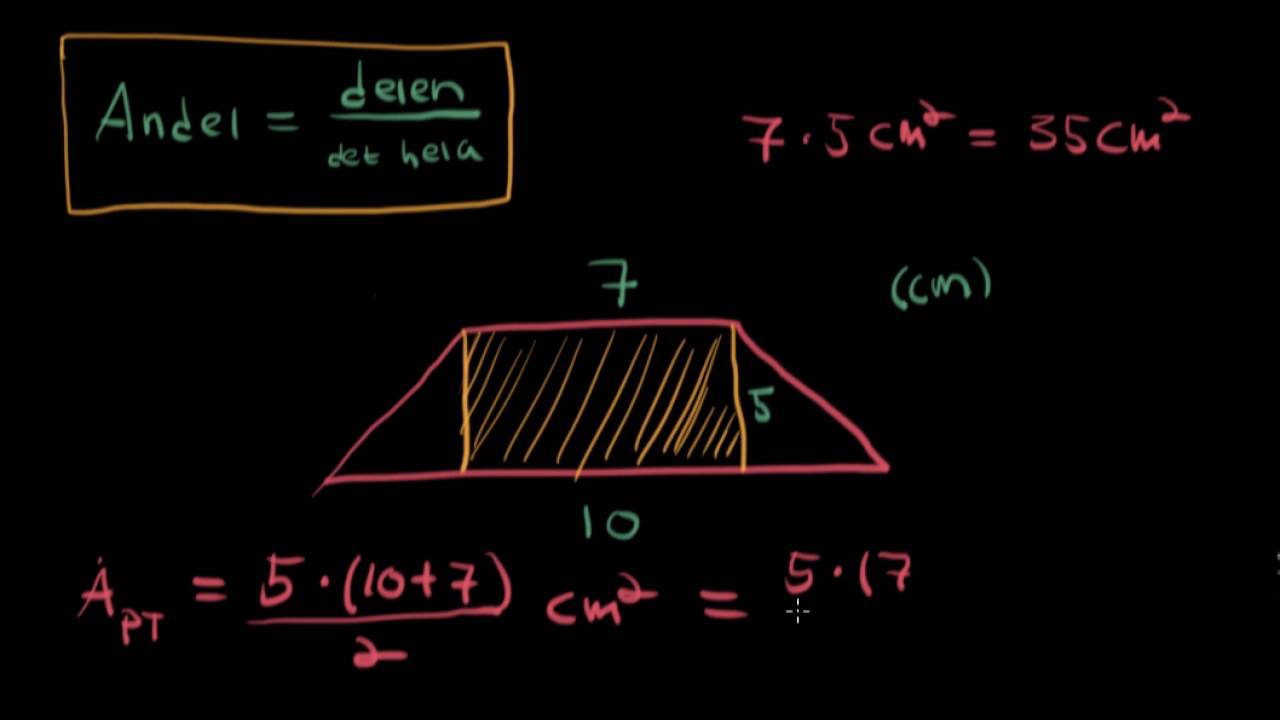 Andel = delen / det hela
7 · 5 cm² = 35 cm²
7
(cm)
5
10
A_PT = 5 · (10+7) / 2 cm² = 5 · (7